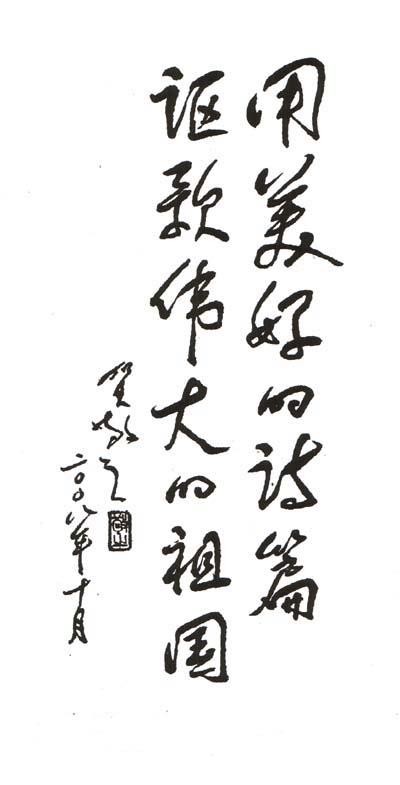 用美好的诗篇
讴歌伟大的祖国
贺敬之
二〇〇八年十月
敬之